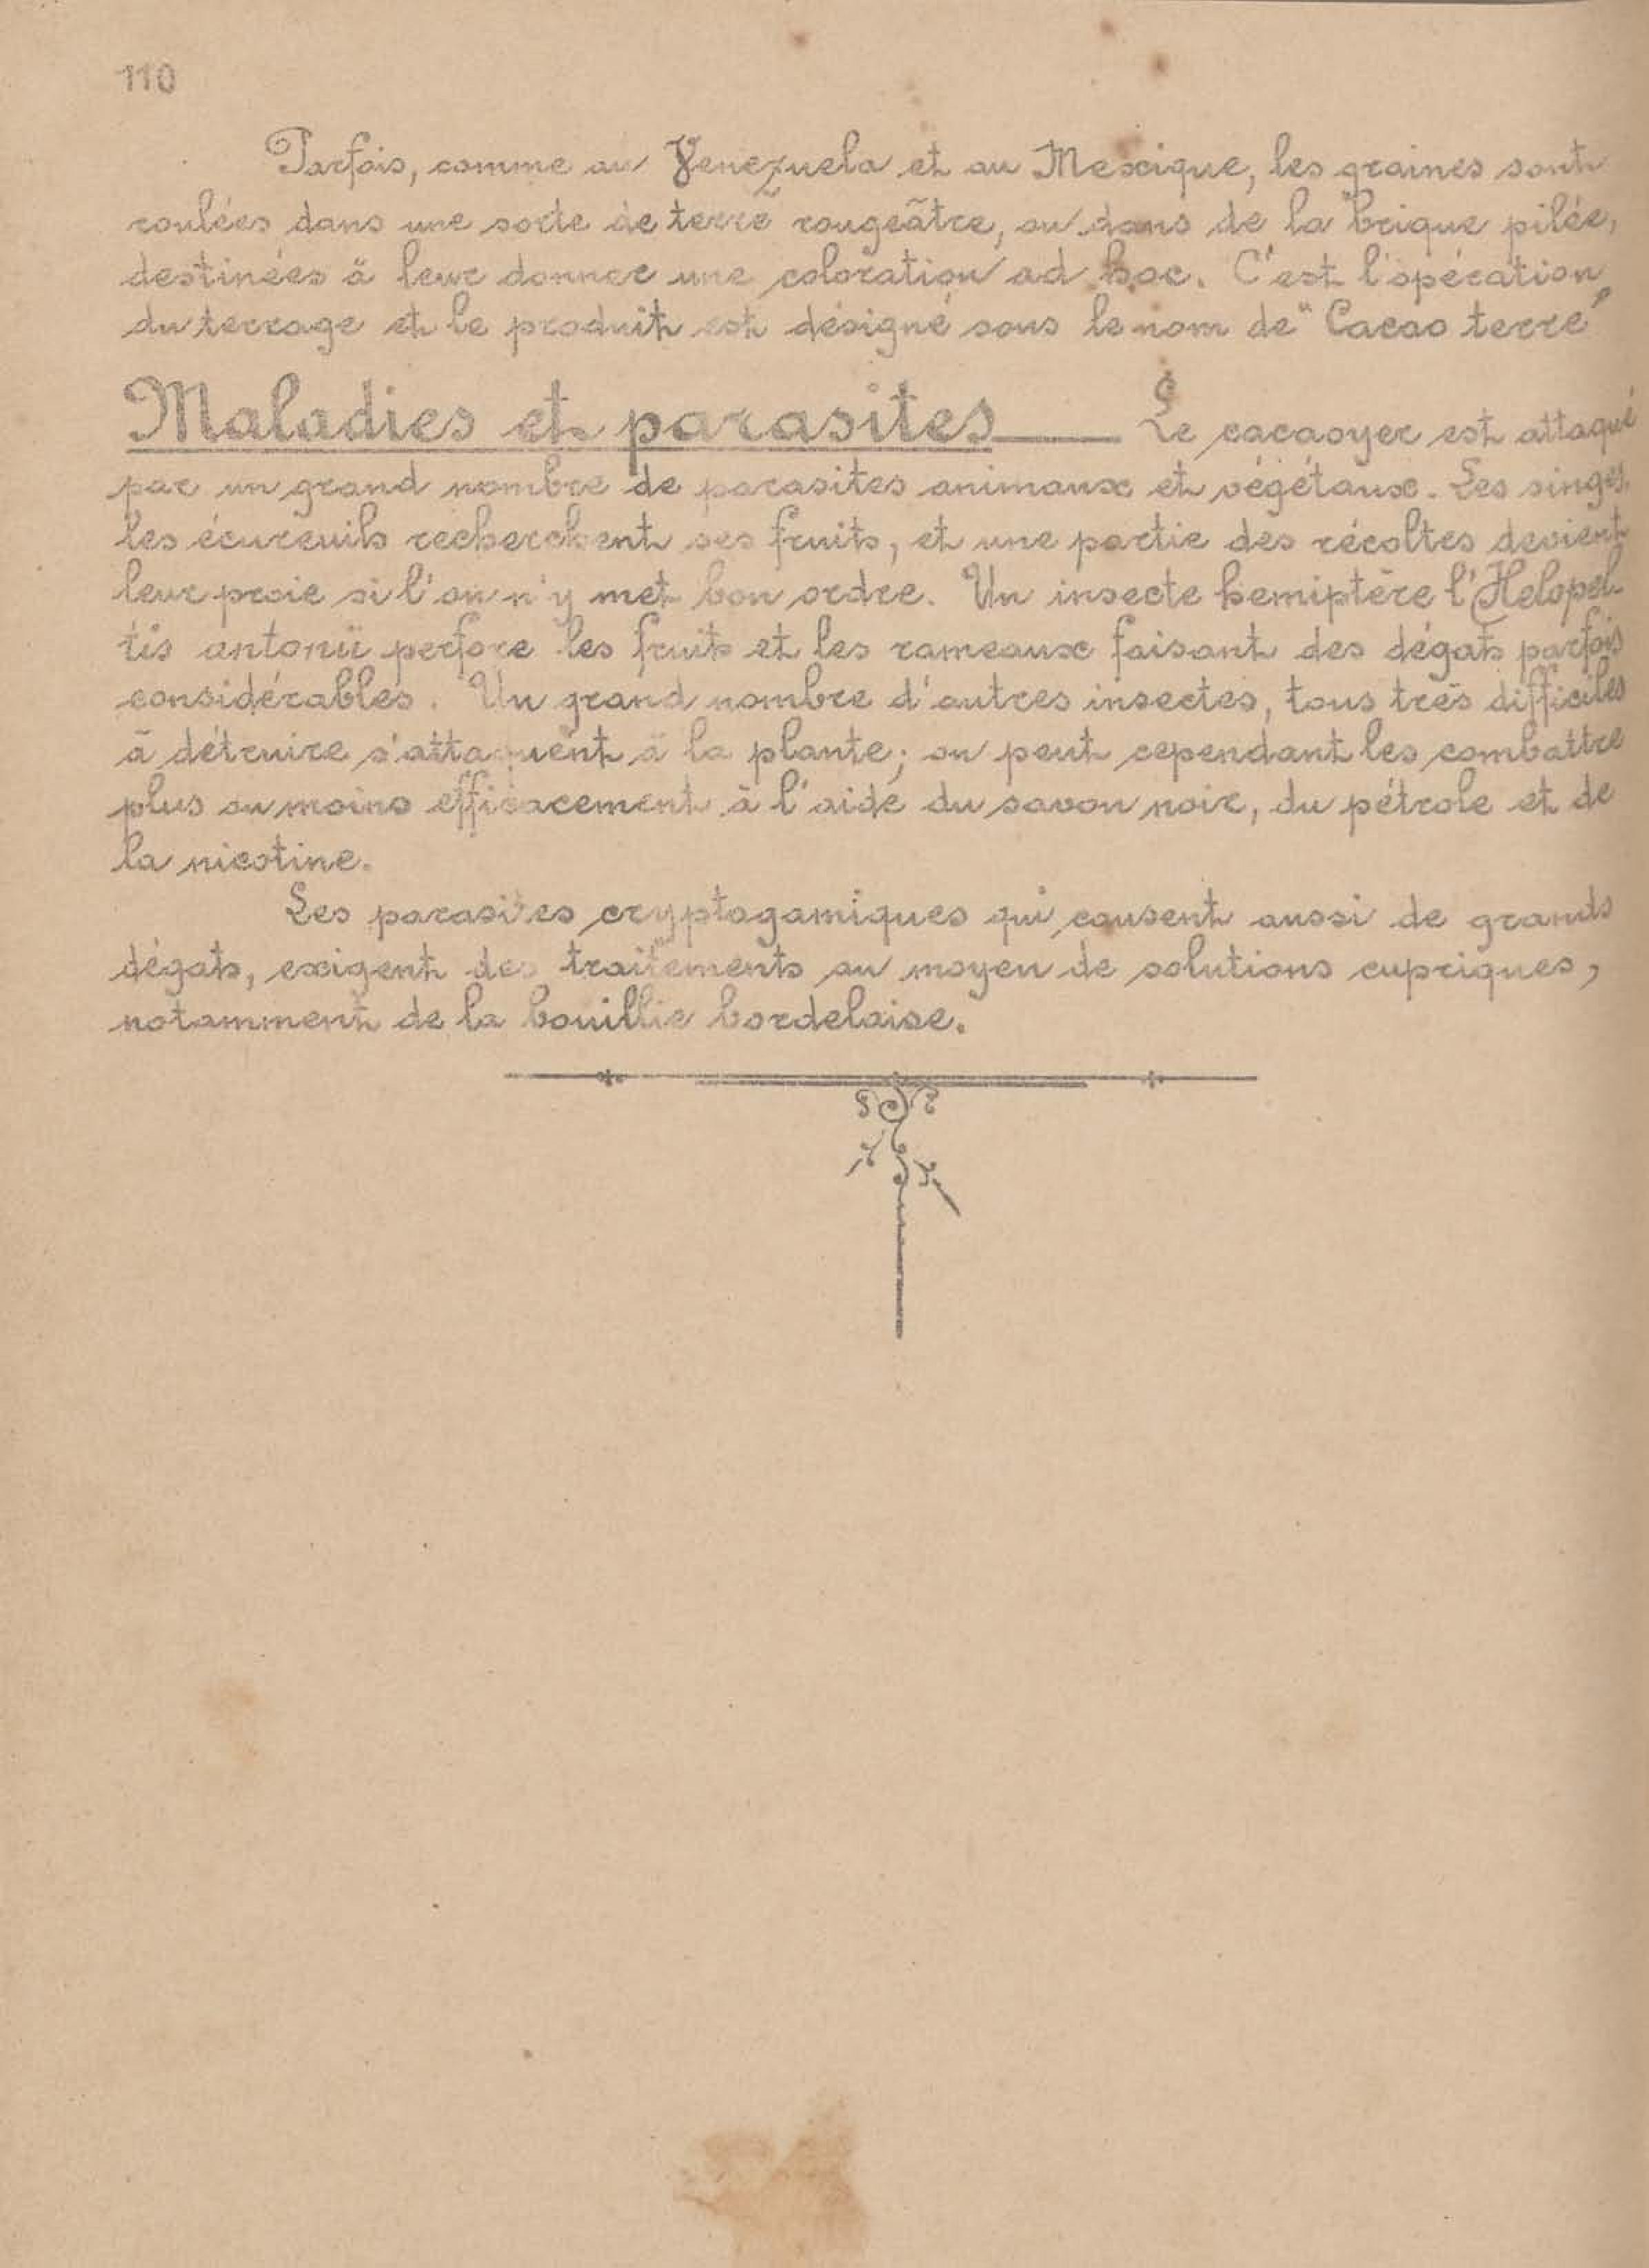 110
Parfois, comme au Venezuela et au Mexique, les graines sont
roulées dans une sorte de terre rougeâtre, ou dans de la brique pilée,
destinées à leur donner une coloration ad hoc. C'est l'opération
du terrage et le produit est désigné sous le nom de "Cacao terré"
Maladies et parasites — Le cacaoyer est attaqué
par un grand nombre de parasites animaux et végétaux. Les singes,
les écureuils recherchent ses fruits, et une partie des récoltes devient
leur proie si l'on n'y met bon ordre. Un insecte hemiptère l'Helopel-
tis antonii perfore les fruits et les rameaux faisant des dégats parfois
considérables. Un grand nombre d'autres insectes, tous très difficiles
à détruire s'attaquent à la plante; on peut cependant les combattre
plus ou moins efficacement à l'aide du savon noir, du pétrole et de
la nicotine.
Les parasites cryptogamiques qui causent aussi de grands
dégats, exigent des traitements au moyen de solutions cupriques,
notamment de la bouillie bordelaise.